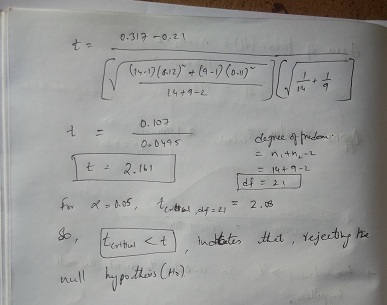 t = 0.317 - 0.21
[√(14-1)(0.12)² + (9-1)(0.11)² / 14+9-2] [√1/14 + 1/9]
t = 0.107 / 0.0495
t = 2.161
degree of freedom.
= n₁+n₂-2
= 14+9-2
df = 21
For α = 0.05, t critical, df=21 = 2.08
So, t critical < t, indicates that, rejecting the
null hypothesis (H₀)